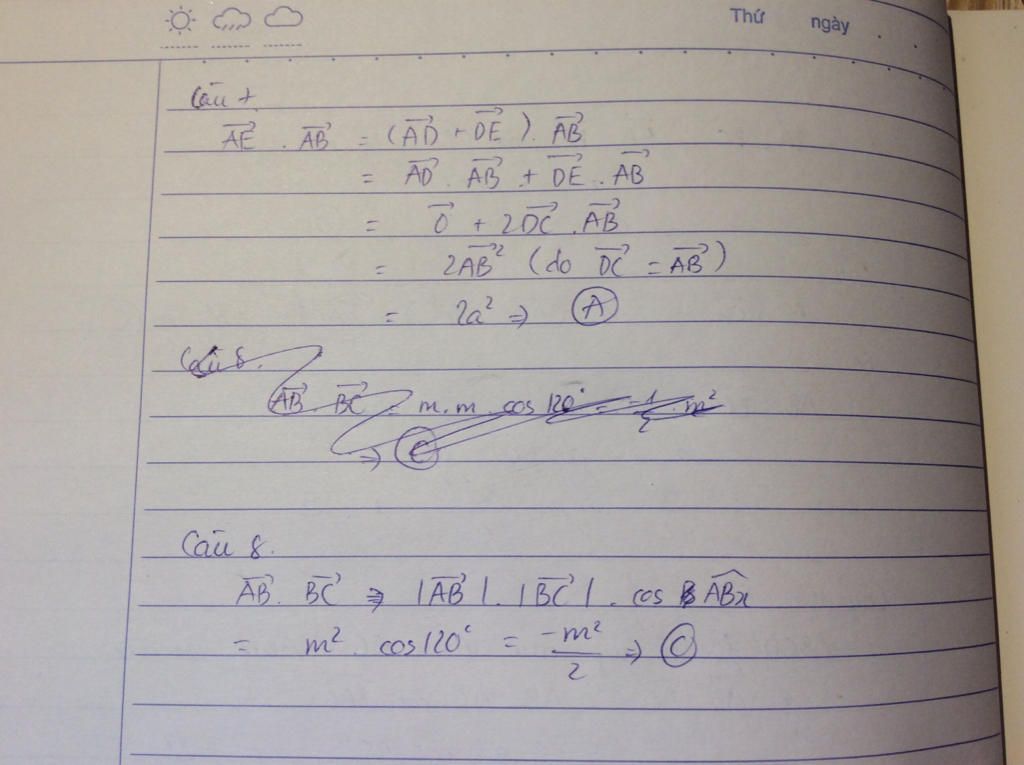 Thứ ngày
Câu 7.
\overrightarrow{AE} . \overrightarrow{AB} = (\overrightarrow{AD} + \overrightarrow{DE}) . \overrightarrow{AB}
= \overrightarrow{AD} . \overrightarrow{AB} + \overrightarrow{DE} . \overrightarrow{AB}
= \overrightarrow{0} + 2\overrightarrow{DC} . \overrightarrow{AB}
= 2\overrightarrow{AB}² (do \overrightarrow{DC} = \overrightarrow{AB})
= 2a² ⇒ A
Câu 8.
\overrightarrow{AB} \overrightarrow{BC} = m.m.cos 120° = -1/2 m²
⇒ C
Câu 8.
\overrightarrow{AB} . \overrightarrow{BC} ⇒ |\overrightarrow{AB}| . |\overrightarrow{BC}| . cos \widehat{ABx}
= m² . cos120° = -m²/2 ⇒ C